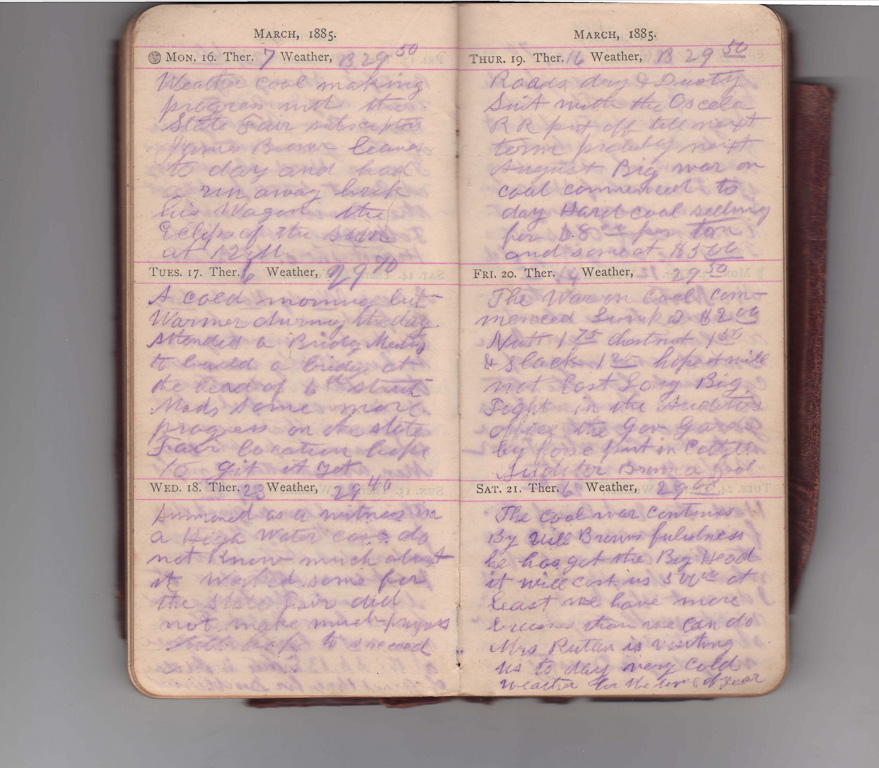 MARCH, 1885.
MON. 16. Ther. 7 Weather, B 29 50
Weather cool making
progress with the
State Fair subscription
James Brown leaves
to day and had
a run away broke
his Wagon the
Eclips of the sun
at 12 M
TUES. 17. Ther. 6 Weather, 29 70
A cold morning but
Warmer during the day
Attended a Bridge Meeting
to build a bridge at
the head of 6th street
Made some more
progress on the state
Fair location hope
to git it yet
WED. 18. Ther. 23 Weather, 29 40
Summoned as a witness in
a High Water case do
not know much about
it worked some for
the State Fair did
not make much progress
Still hope to succeed
MARCH, 1885.
THUR. 19. Ther. 16 Weather, B 29 50
Roads dry & Dusty
Suit with the Oscela
R R put off till next
term probably next
August Big war on
coal commenced to
day Hard coal selling
for $8.00 per ton
and some at $5.00
FRI. 20. Ther. Weather, 29 50
The War on Coal com-
menced Lump @ $2.00
Nutt 1 75 chestnut 1 50
& Slack hope it will
not Last Long Big
Fight in the Auditors
office the Gov Gards
by force put in Cattell
Auditor Brown a fool
SAT. 21. Ther. 6 Weather, 29 60
The coal war continues
By Will Browns fulishness
he has got the Big Head
it will cost us 500 at
Least we have more
business than we can do
Mrs Ruttan is visiting
us to day very cold
weather for the time of year